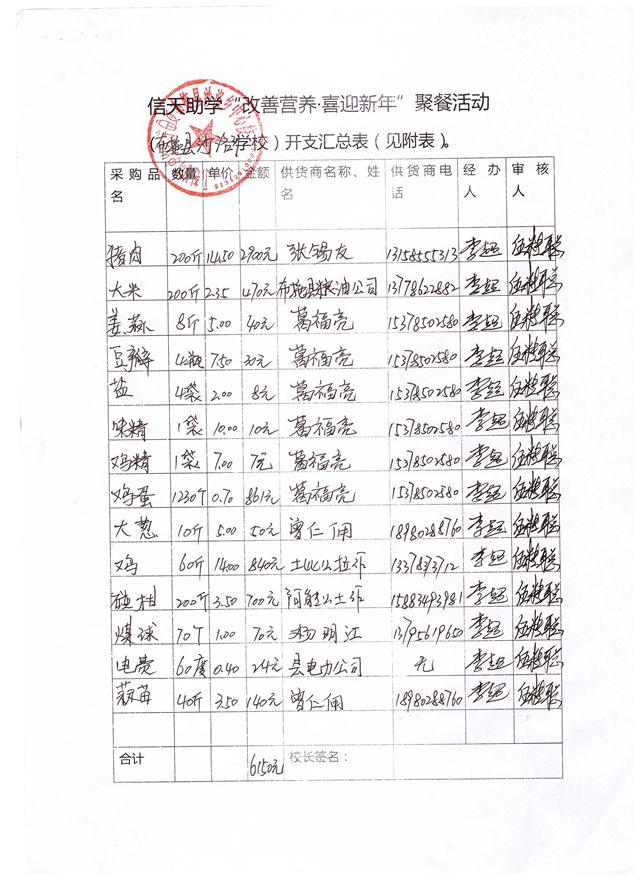 信天助学“改善营养·喜迎新年”聚餐活动
（布拖县 学校）开支汇总表（见附表）。
采购品名 数量 单价 金额 供货商名称、姓名 供货商电话 经办人 审核人
猪肉 200斤 14.50 2900元 张锡友 13158555313 李超
大米 200斤 2.35 470元 布拖县粮油公司 13778622882 李超
姜蒜 8斤 5.00 40元 葛福亮 15378502580 李超
豆瓣 4瓶 7.50 30元 葛福亮 15378502580 李超
盐 4袋 2.00 8元 葛福亮 15378502580 李超
味精 1袋 10.00 10元 葛福亮 15378502580 李超
鸡精 1袋 7.00 7元 葛福亮 15378502580 李超
鸡蛋 1230个 0.70 861元 葛福亮 15378502580 李超
大葱 10斤 5.00 50元 曾仁佣 18980288760 李超
鸡 60斤 14.00 840元 李超
碰柑 200斤 3.50 700元 15883493981 李超
煤球 70个 1.00 70元 杨明江 13795619650 李超
电费 60度 0.40 24元 县电力公司 无 李超
蒜苗 40斤 3.50 140元 曾仁佣 18980288760 李超
合计 6150元 校长签名：